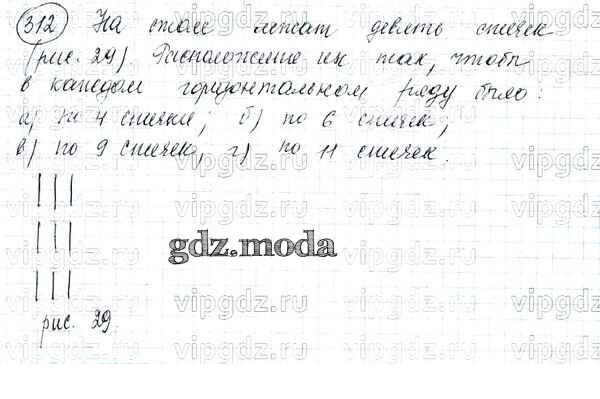 312 На столе лежат девять спичек
(рис. 29) Расположение их так, чтобы
в каждом горизонтальном ряду было:
а) по 4 спички; б) по 6 спичек;
в) по 9 спичек; г) по 11 спичек.
gdz.moda
рис. 29.
vipgdz.ru